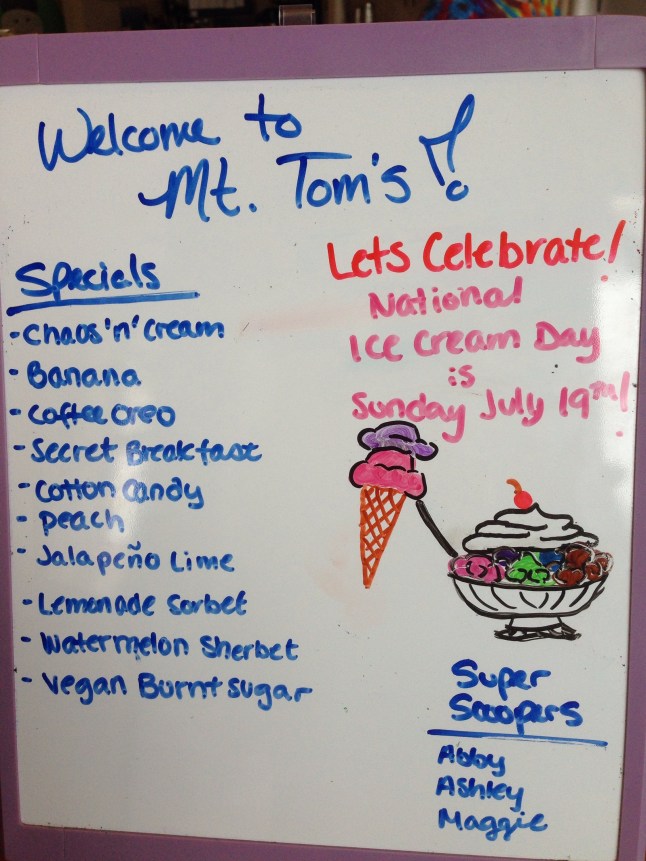 Welcome to
Mt. Tom's!
Specials
- Chaos 'n' Cream
- Banana
- Coffee Oreo
- Secret Breakfast
- Cotton Candy
- Peach
- Jalapeño Lime
- Lemonade Sorbet
- Watermelon Sherbet
- Vegan Burnt sugar
Lets Celebrate!
National
Ice Cream Day
is
Sunday July 19th!
Super
Scoopers
Abby
Ashley
Maggie